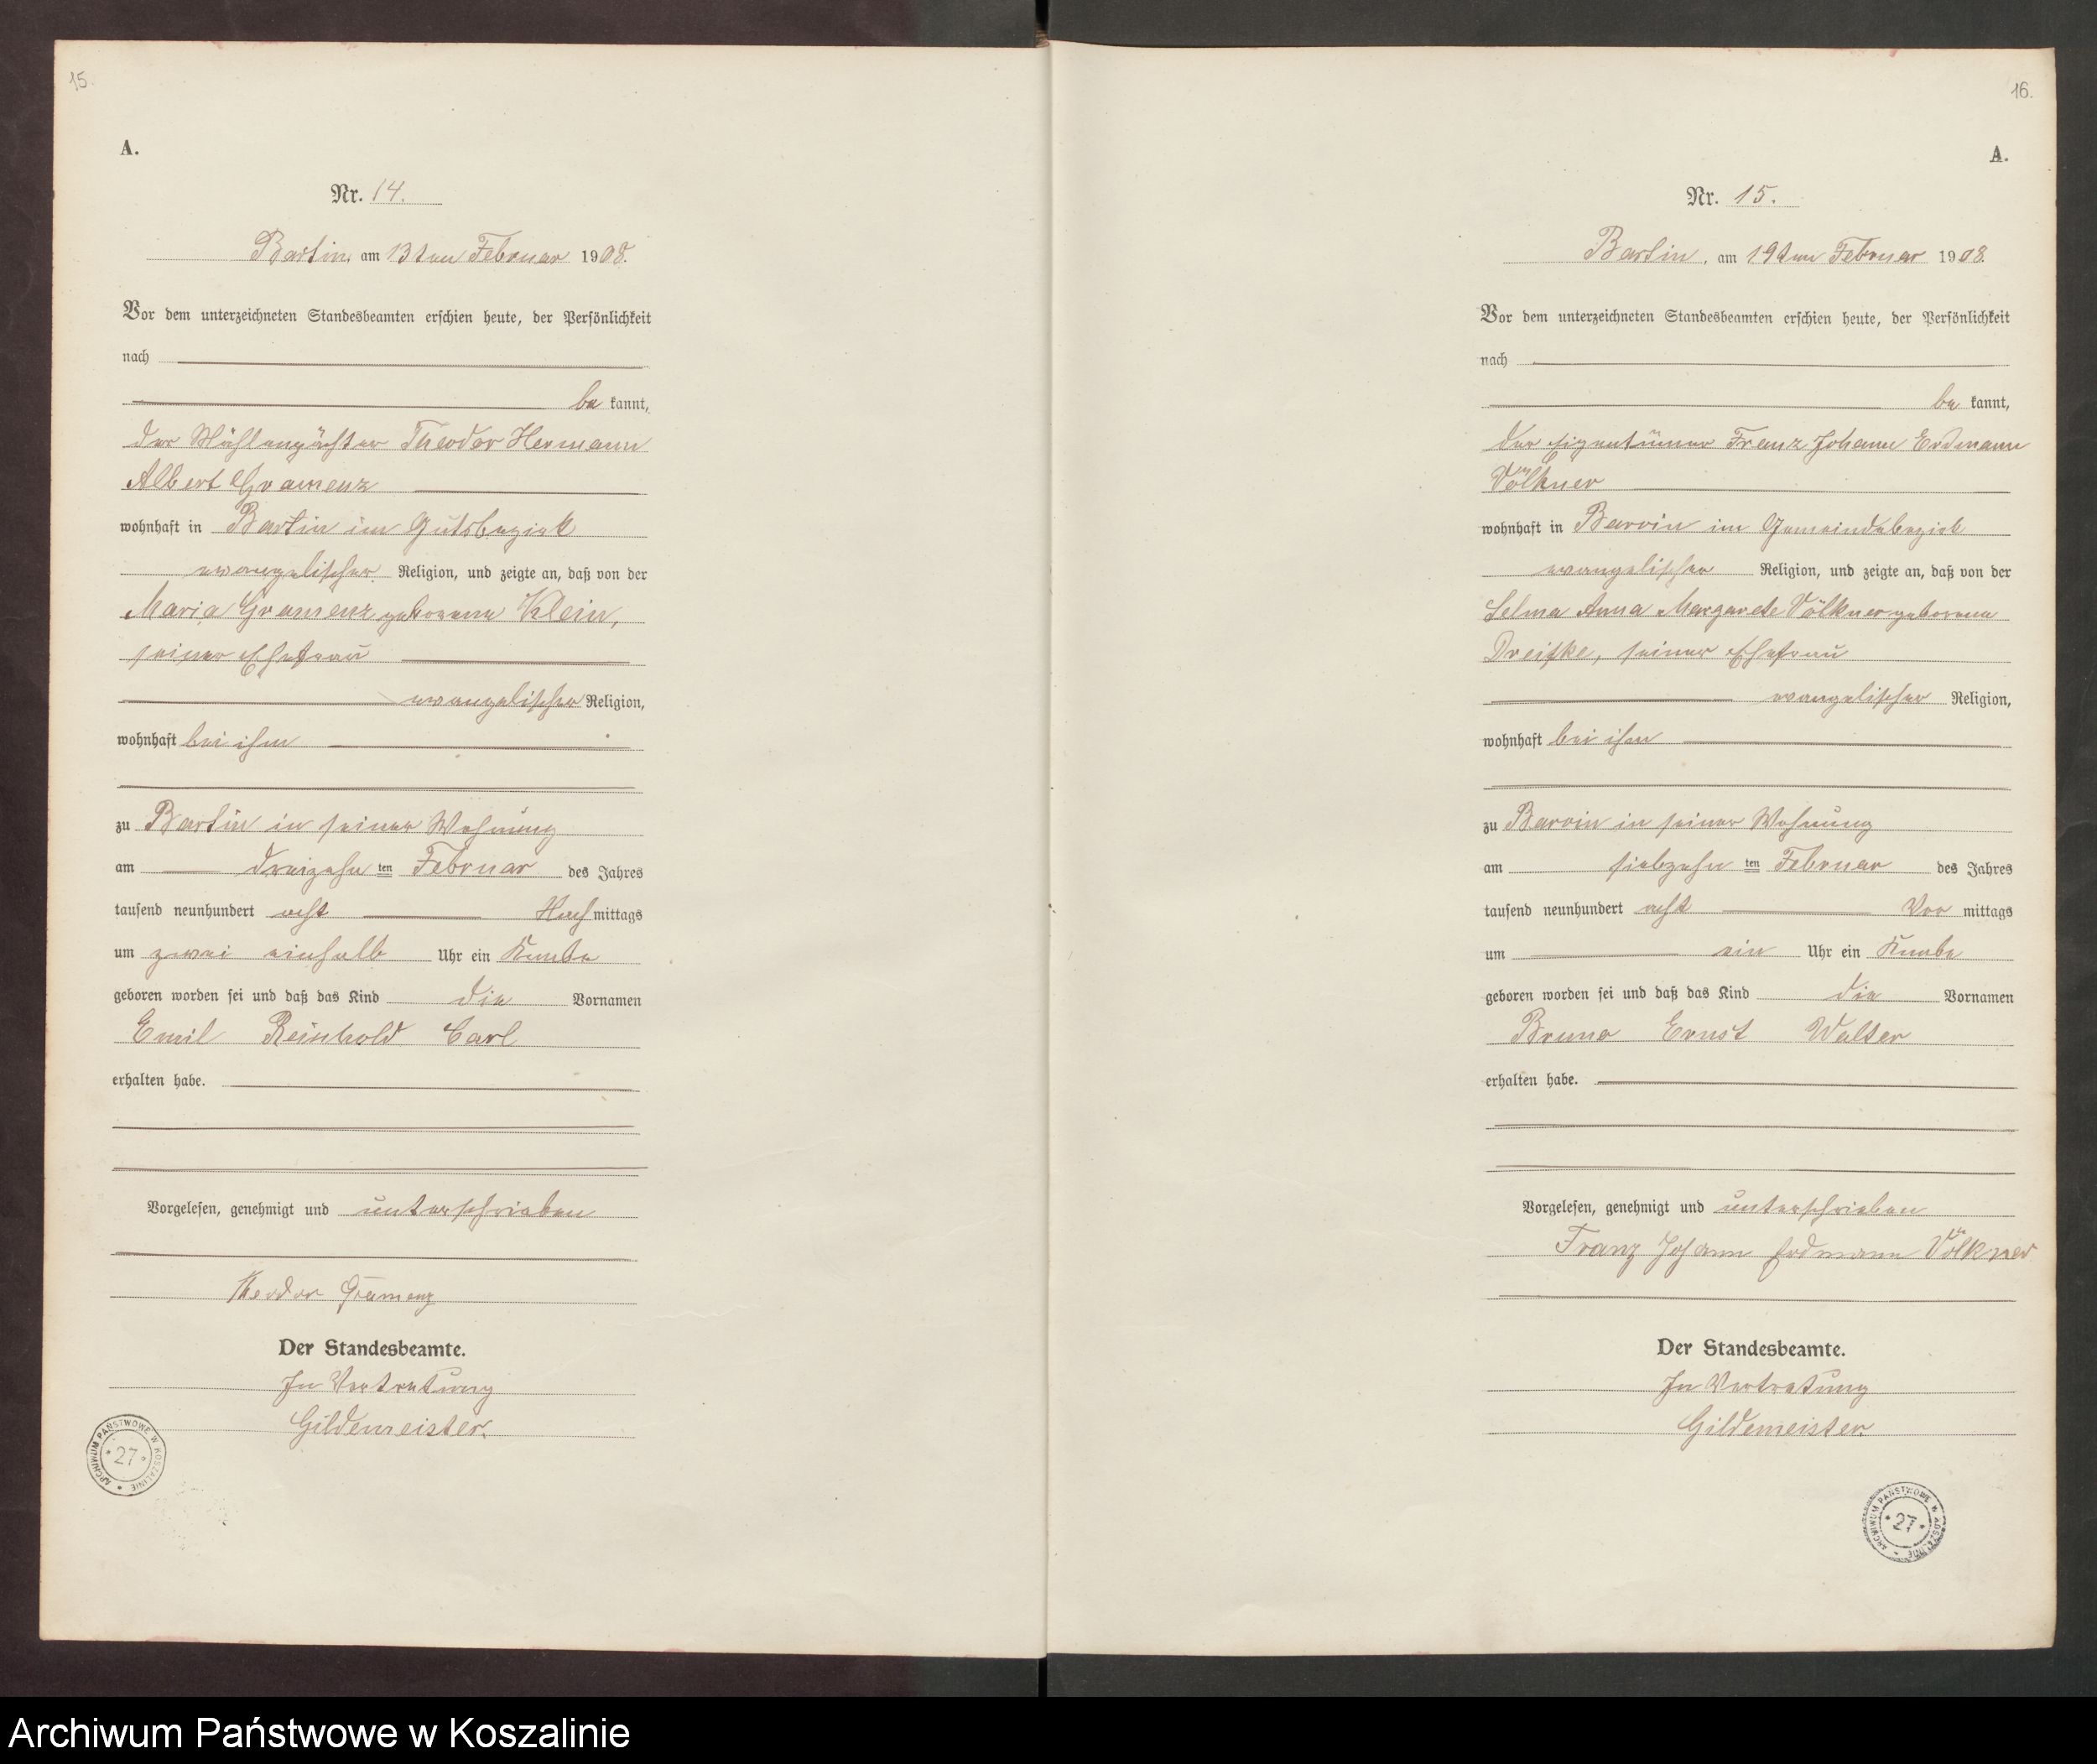 15.
A.
Nr. 14.
Bartin, am 13ten Februar 1908.
Vor dem unterzeichneten Standesbeamten erschien heute, der Persönlichkeit
nach
be kannt,
der Mühlenpächter Theodor Hermann
Albert Gramenz
wohnhaft in Bartin im Gutsbezirk
evangelischer Religion, und zeigte an, daß von der
Maria Gramenz geborene Klein,
seiner Ehefrau
evangelischer Religion,
wohnhaft bei ihm
zu Bartin in seiner Wohnung
am dreizehn ten Februar des Jahres
tausend neunhundert acht Nach mittags
um zwei einhalb Uhr ein Knabe
geboren worden sei und daß das Kind die Vornamen
Emil Reinhold Carl
erhalten habe.
Vorgelesen, genehmigt und unterschrieben
Theodor Gramenz
Der Standesbeamte.
In Vertretung
Gildemeister.
ARCHIWUM PAŃSTWOWE W KOSZALINIE
* 27 *
16.
A.
Nr. 15.
Bartin, am 19ten Februar 1908.
Vor dem unterzeichneten Standesbeamten erschien heute, der Persönlichkeit
nach
be kannt,
der Eigentümer Franz Johann Erdmann
Völkner
wohnhaft in Barvin im Gemeindebezirk
evangelischer Religion, und zeigte an, daß von der
Selma Anna Margarete Völkner geborene
Dreifke, seiner Ehefrau
evangelischer Religion,
wohnhaft bei ihm
zu Barvin in seiner Wohnung
am siebzehn ten Februar des Jahres
tausend neunhundert acht Vor mittags
um ein Uhr ein Knabe
geboren worden sei und daß das Kind die Vornamen
Bruno Ernst Walter
erhalten habe.
Vorgelesen, genehmigt und unterschrieben
Franz Johann Erdmann Völkner
Der Standesbeamte.
In Vertretung
Gildemeister.
ARCHIWUM PAŃSTWOWE W KOSZALINIE
* 27 *
Archiwum Państwowe w Koszalinie